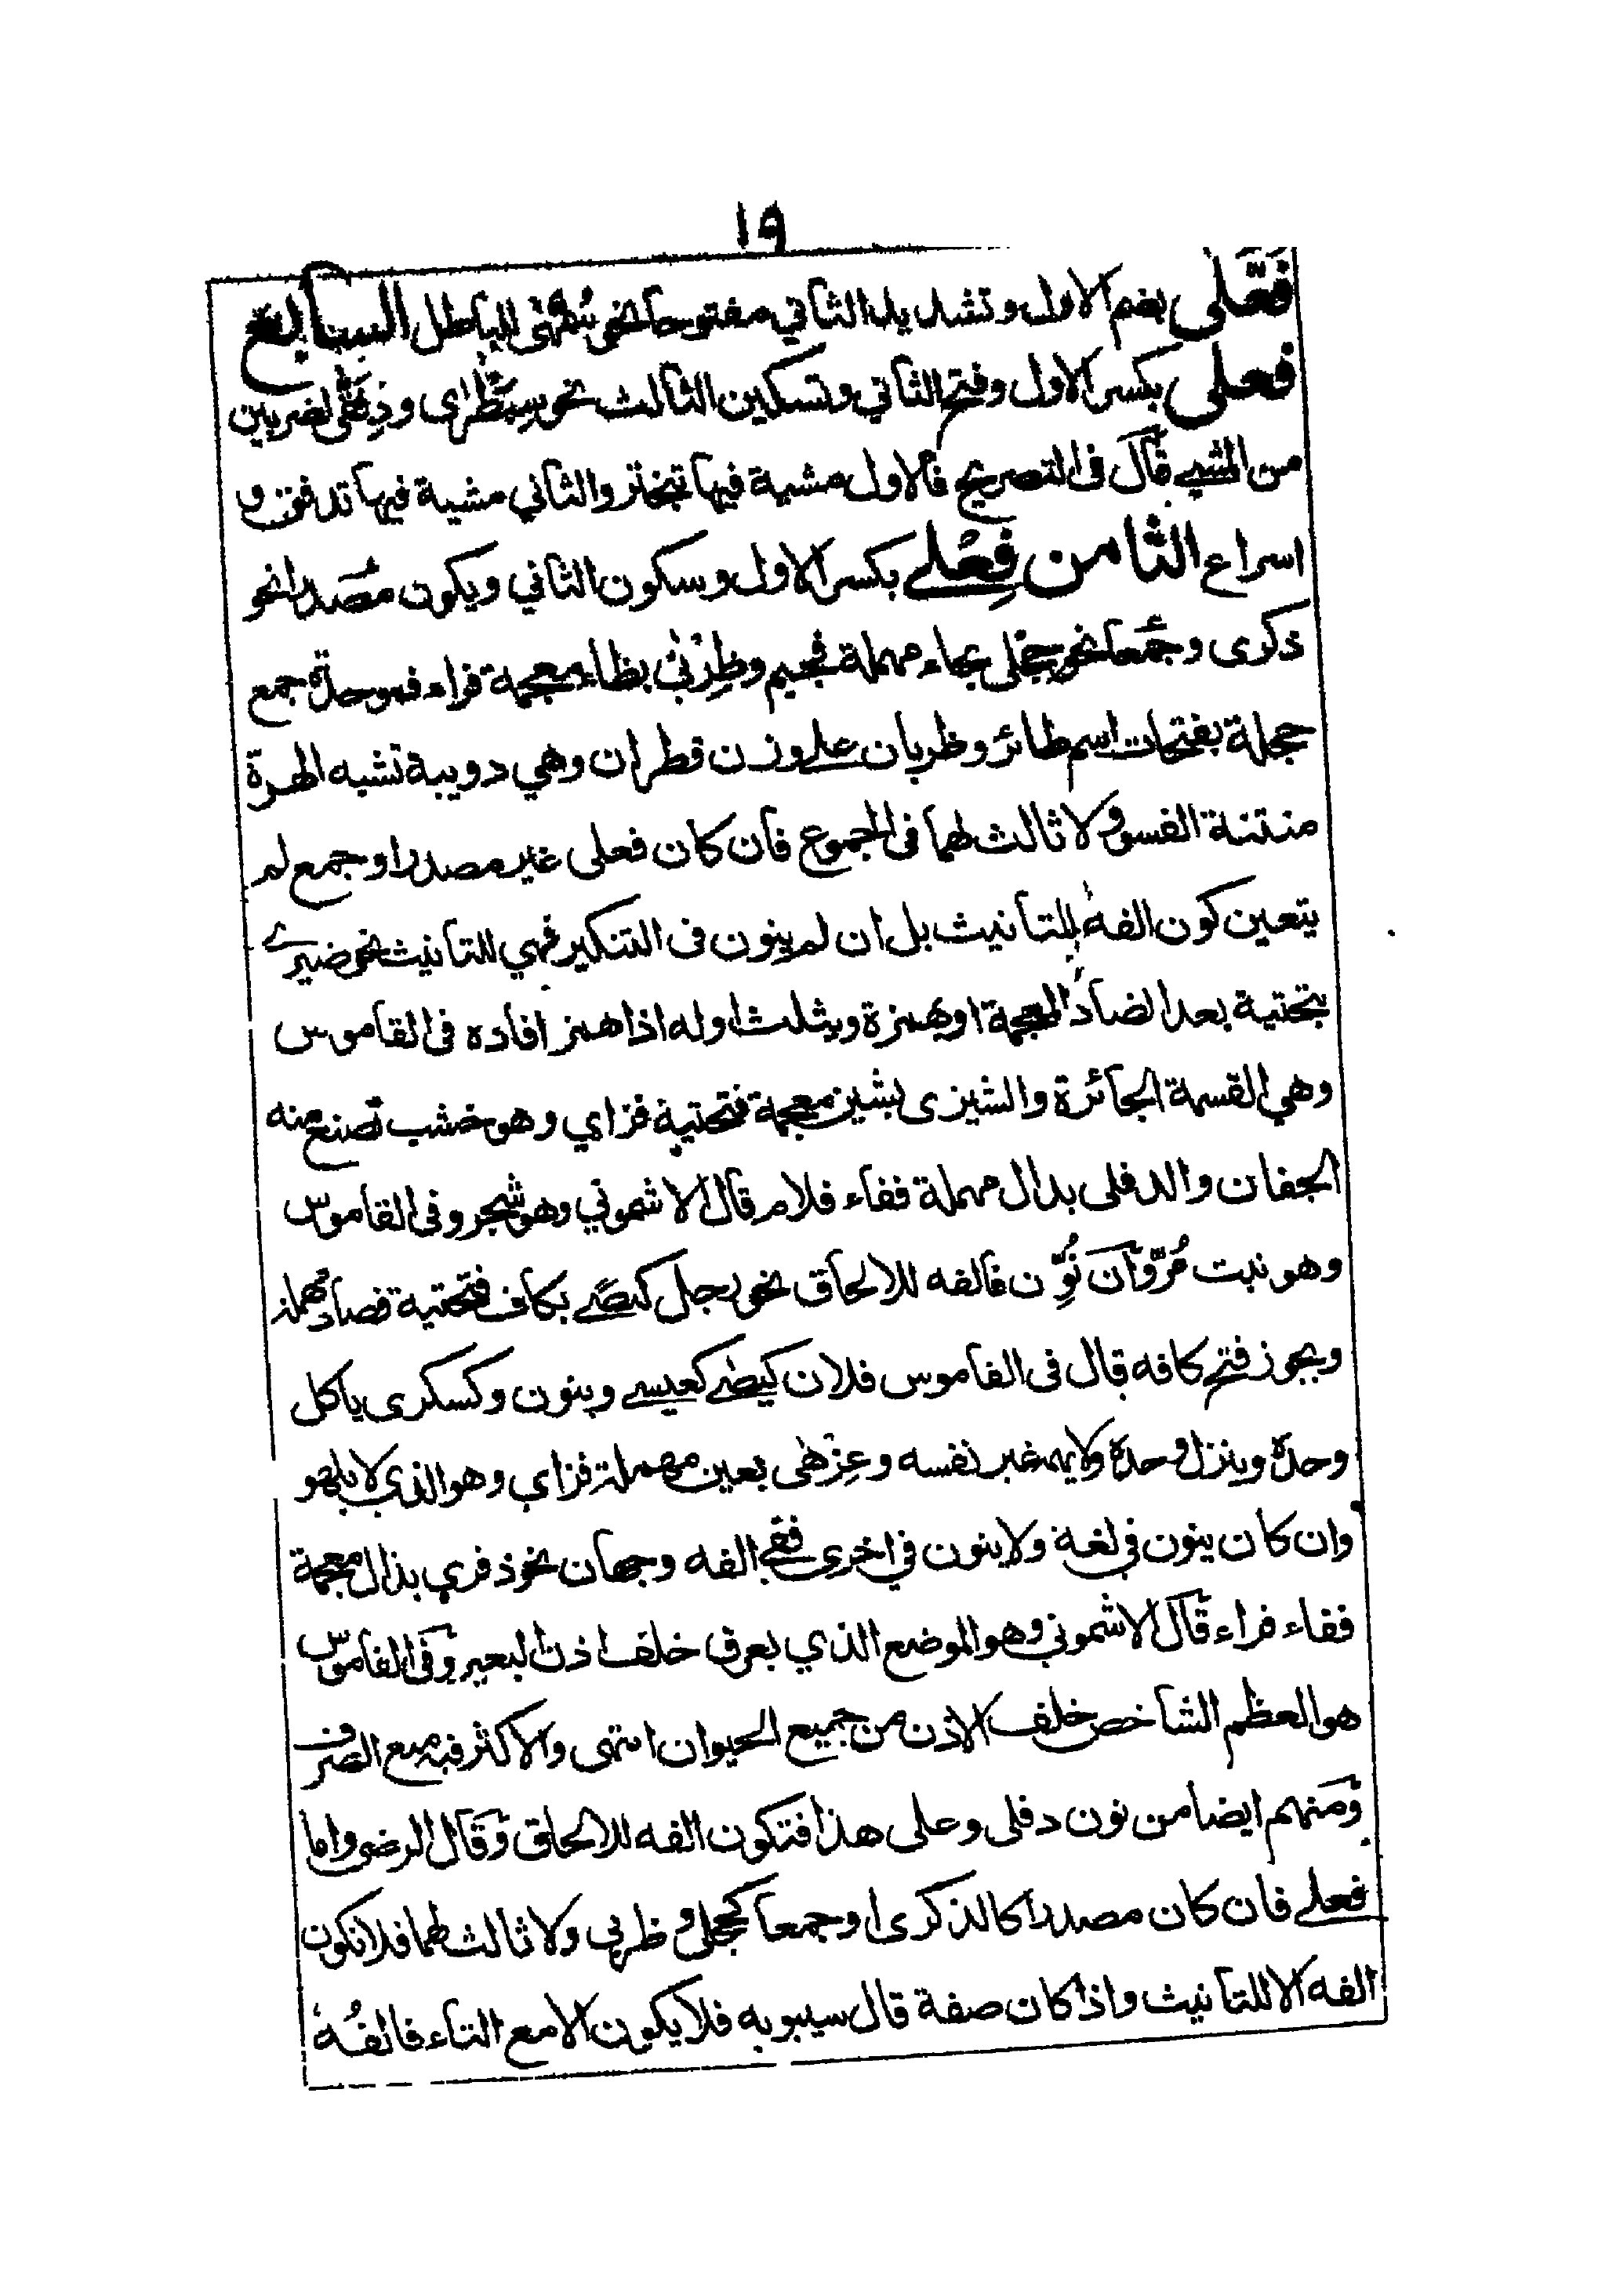 ١٩
فُعَّلى بضم الاول وتشديد الثاني مفتوحا نحو سُمَّهٰى للباطل السابع
فعلى بكسر الاول وفتح الثاني وتسكين الثالث نحو سِبَطْرٰى ودِفَقّٰى لضربين
من المشي قال فى التصريح فالاول مشية فيها تبختر والثاني مشية فيها تدفق و
اسراع الثامن فِعْلے بكسر الاول وسكون الثاني ويكون مصدرا نحو
ذكرى وجمعا نحو حجلى بحاء مهملة فجيم وظِرْبٰى بظاء معجمة فراء فموحدة جمع
حجلة بفتحات اسم طائر وظربان علے وزن قطران وهي دويبة تشبه الهرة
منتنة الفسو ولا ثالث لهما فى الجموع فان كان فعلى غير مصدر او جمع لم
يتعين كون الفهٗ للتانيث بل ان لم ينون فى التنكير فهي للتانيث نحو ضيزے
بتحتية بعد الضاد المعجمة او همزة ويثلث اوله اذا همز افاده فى القاموس
وهي القسمة الجائرة والشيزى بشين معجمة فتحتية فزاي وهو خشب تصنع منه
الجفان والدفلى بدال مهملة ففاء فلام قال الاشموني وهو شجر وفى القاموس
وهو نبت مُرّ وان نُوِّن فالفه للالحاق نحو رجل كيصے بكاف فتحتية فصاد مهملة
ويجوز فتح كافه قال فى القاموس فلان كيصٰے كعيسے وينون وكسكرى ياكل
وحدهٗ وينزل وحدهٗ ولا يهمه غير نفسه وعِزْهٰى بعين مهملة فزاي وهو الذي لا يلهو
وان كان ينون في لغة ولا ينون في اخرى ففے الفه وجهان نحو ذفري بذال معجمة
ففاء فراء قال الاشموني وهو الموضع الذي يعرق خلف اذن البعير وفى القاموس
هو العظم الشاخص خلف الاذن من جميع الحيوان انتهى والاكثر فيه منع الصرف
ومنهم ايضا من نون دفلى وعلى هذا فتكون الفه للالحاق وقال الرضى واما
فعلے فان كان مصدرا كالذكرى او جمعا كحجلى وظربي ولا ثالث لهما فلا تكون
الفه الا للتانيث واذا كان صفة قال سيبويه فلا يكون الا مع التاء فالفُهٗ